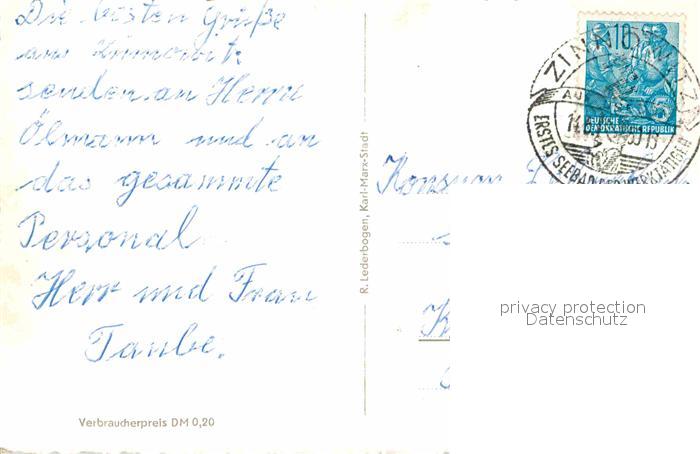 Die besten Grüße
aus Zinnowitz
senden an Herrn
Ölmann und an
das gesammte
Personal
Herr und Frau
Taube.
Verbraucherpreis DM 0,20
R. Lederbogen, Karl-Marx-Stadt
Konsum
10
5
DEUTSCHE
DEMOKRATISCHE REPUBLIK
ZINNOWITZ
ERSTES SEEBAD DER WERKTÄTIGEN
privacy protection
Datenschutz